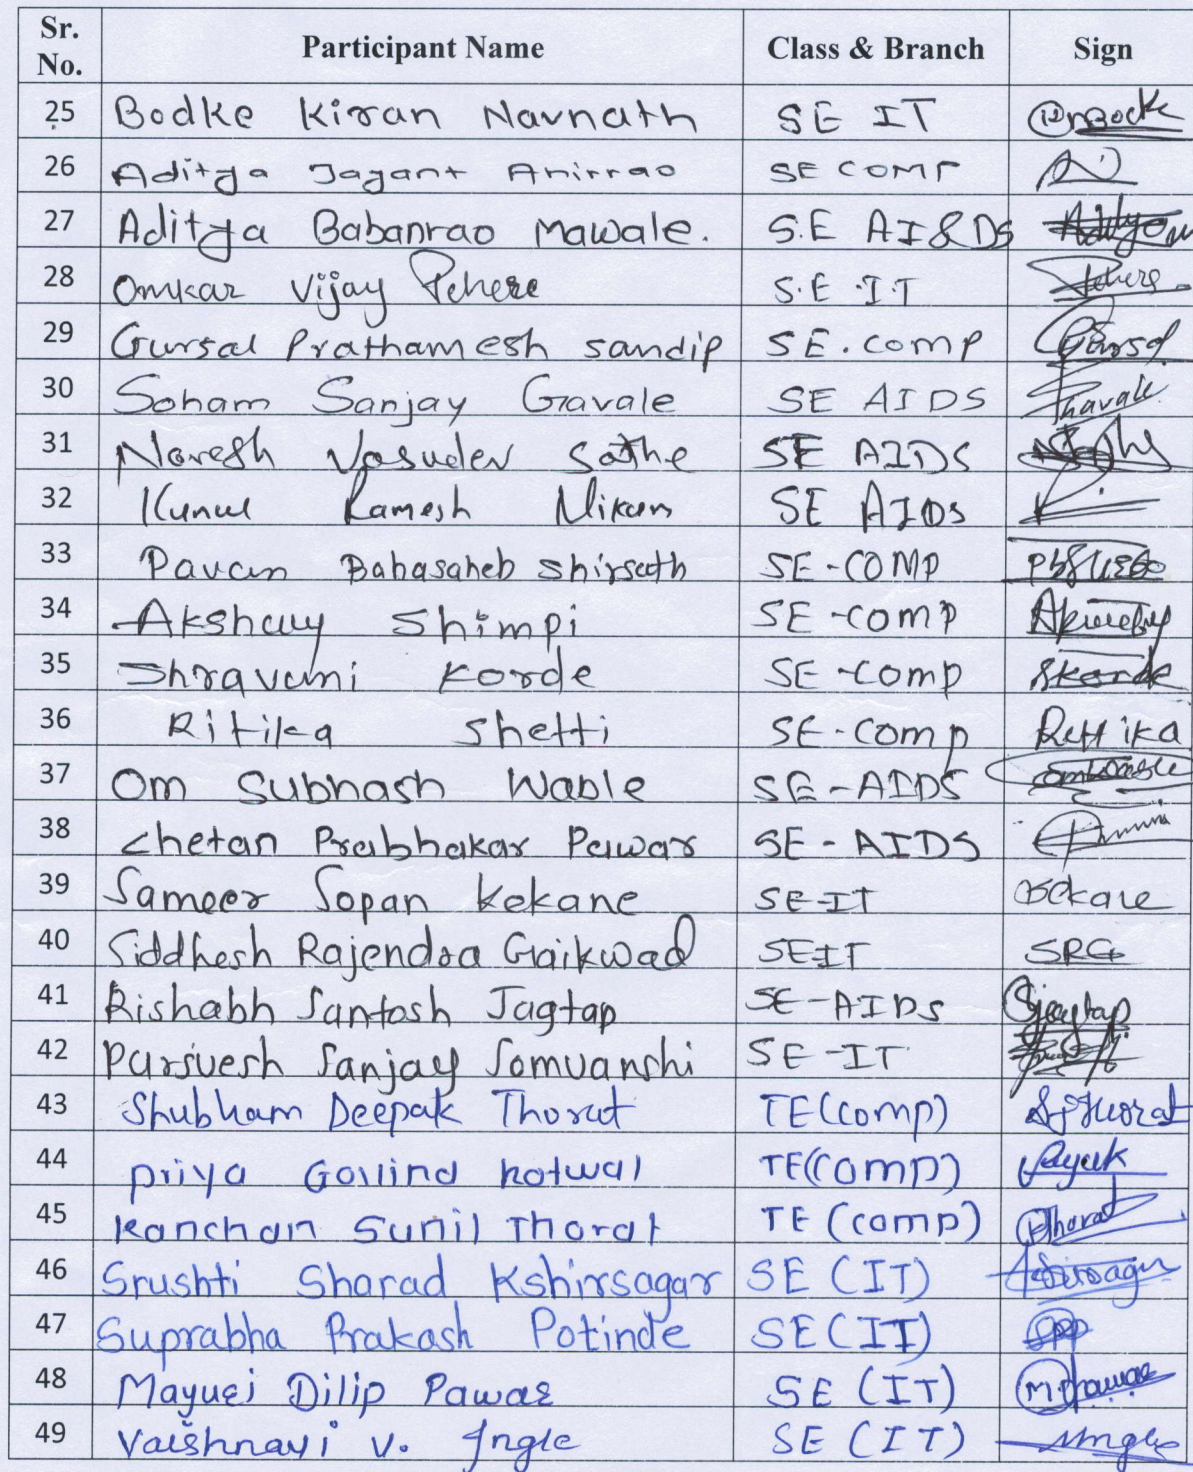 Sr. No. Participant Name Class & Branch Sign
25 Bodke Kiran Navnath SE IT
26 Aditya Jayant Anirrao SE COMP
27 Aditya Babanrao Mawale. S.E AI&DS
28 Omkar Vijay Pehere S.E.IT
29 Gursal Prathamesh sandip SE.comp
30 Soham Sanjay Gavale SE AIDS Gavale
31 Naresh Vasudev Sathe SE AIDS
32 Kunal Ramesh Nikam SE AIDs
33 Pavan Babasaheb Shirsath SE-COMP
34 Akshay Shimpi SE-comp
35 Shravani Korde SE-comp SKorde
36 Ritika Shetti SE-comp
37 Om Subhash Wable SE-AIDS
38 Chetan Prabhakar Pawar SE-AIDS
39 Sameer Sopan Kekane SE-IT
40 Siddhesh Rajendra Gaikwad SEIT SRG
41 Rishabh Santosh Jagtap SE-AIDS
42 Parsvesh Sanjay Somvanshi SE-IT
43 Shubham Deepak Thorat TE(comp)
44 priya Govind kotwal TE(comp)
45 Kanchan Sunil Thorat TE (comp)
46 Srushti Sharad Kshirsagar SE (IT)
47 Suprabha Prakash Potinde SE(IT)
48 Mayuri Dilip Pawar SE (IT)
49 Vaishnavi V. Ingle SE (IT)